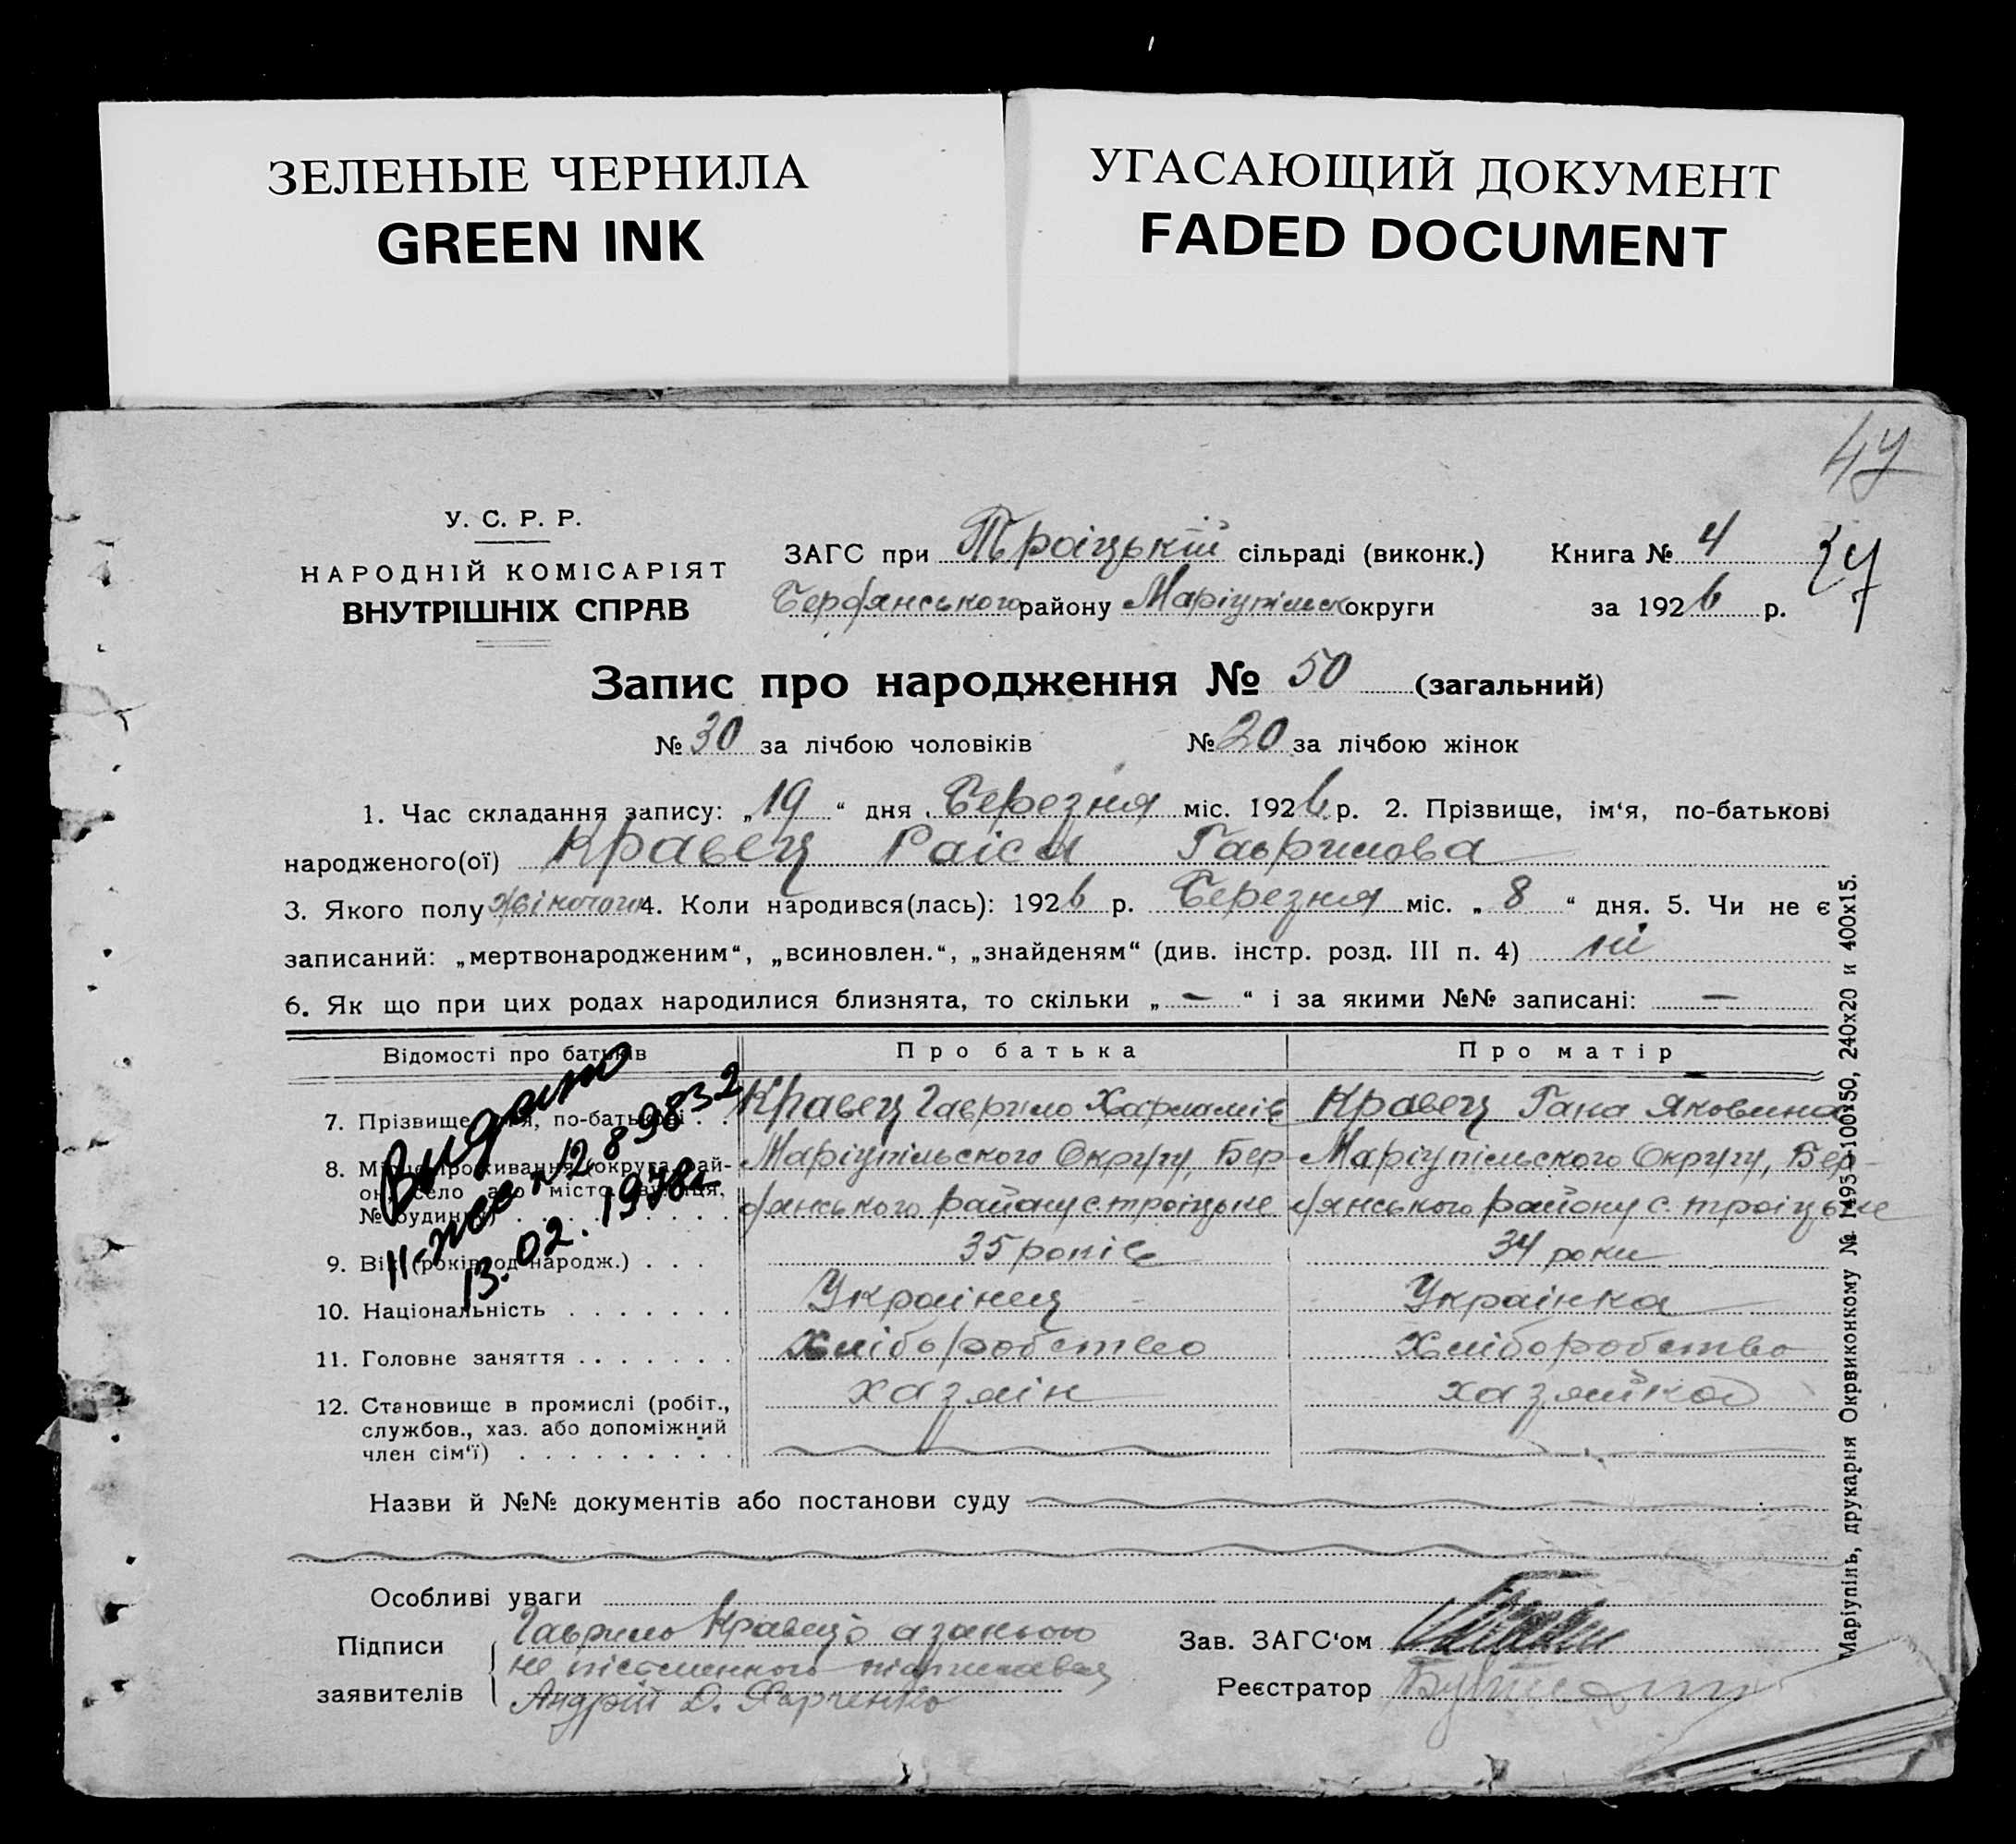 ЗЕЛЕНЫЕ ЧЕРНИЛА
GREEN INK
УГАСАЮЩИЙ ДОКУМЕНТ
FADED DOCUMENT
У. С. Р. Р.
НАРОДНІЙ КОМІСАРІЯТ
ВНУТРІШНІХ СПРАВ
ЗАГС при Троіцькій сільраді (виконк.) Книга № 4
Бердянського району Маріупільск округи за 1926 р.
Запис про народження № 50 (загальний)
№ 30 за лічбою чоловіків № 20 за лічбою жінок
1. Час складання запису: „19“ дня Березня міс. 1926 р. 2. Прізвище, ім‘я, по-батькові
народженого(ої) Кравец Раіса Гаврилова
3. Якого полу жіночого 4. Коли народився(лась): 1926 р. Березня міс. „8“ дня. 5. Чи не є
записаний: „мертвонародженим“, „всиновлен.“, „знайденям“ (див. інстр. розд. III п. 4) ні
6. Як що при цих родах народилися близнята, то скільки „—“ і за якими №№ записані: —
Відомості про батьків Про батька Про матір
7. Прізвище, ім‘я, по-батькові . . Кравец Гаврило Харламів Кравец Гана Яковина
8. Місце проживання (округа, рай- Маріупільского Округу, Бер- Маріупільского Округу, Бер-
он, село або місто, вулиця, дянського району с. троіцьке дянського району с. троіцьке
№ будинку) . . . . . . . . . .
9. Вік (років од народж.) . . . 35 років 34 роки
10. Національність . . . . . . . Украінец Украінка
11. Головне заняття . . . . . . . Хліборобство Хліборобство
12. Становище в промислі (робіт., хазяін хазяйка
службов., хаз. або допоміжний
член сім‘ї) . . . . . . . . .
Видано
13.02.1978г
Назви й №№ документів або постанови суду
Особливі уваги
Підписи Гаврило Кравець а за нього
не письменного підписався
заявителів Андрій Д. Харченко
Зав. ЗАГС‘ом
Реєстратор
Маріупіль, друкарня Окрвиконкому № 1495-100x50, 240x20 и 400x15.